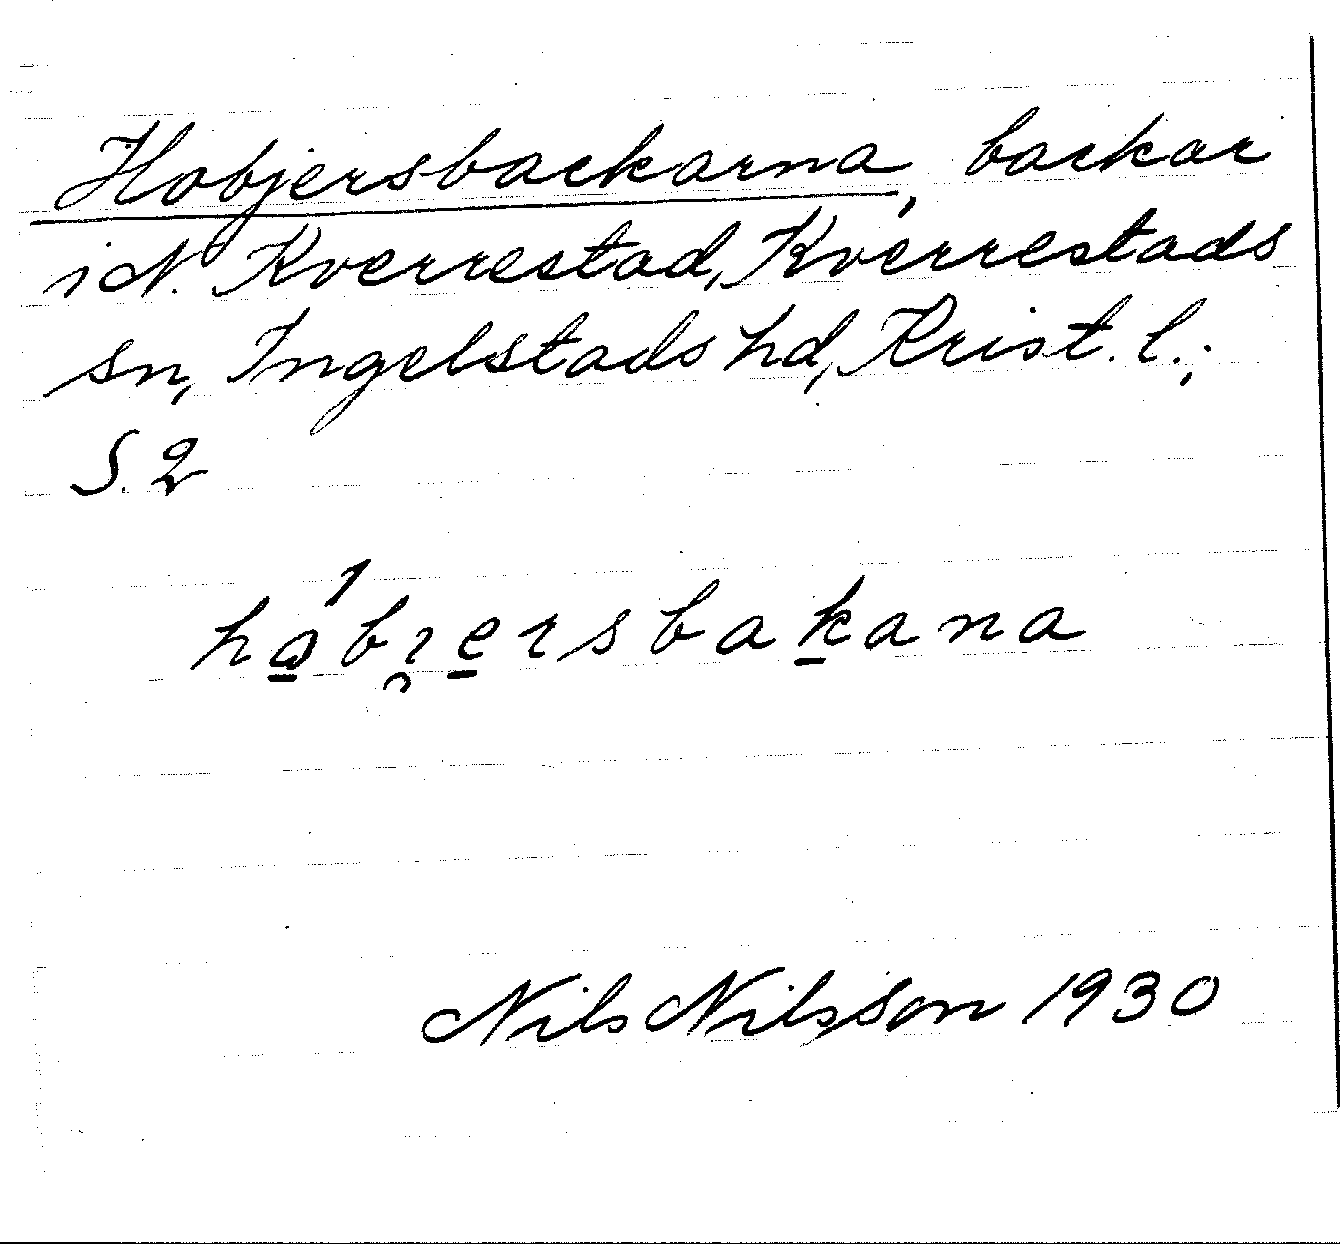 Hobjersbackarna, backar
i N. Kverrestad, Kverrestads
sn, Ingelstads hd, Krist. l.;
S. 2
ha̱´bı̯e̱rsbaḵana
Nils Nilsson 1930